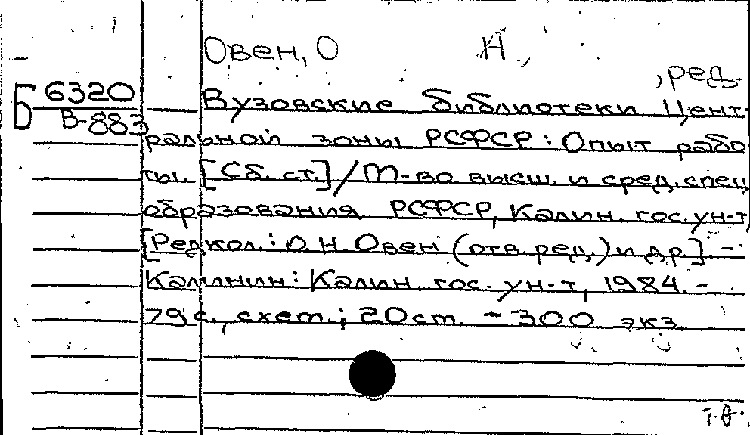 Овен, О Н.
, ред.
Б 6320 Вузовские библиотеки Цент-
В-883
ральной зоны РСФСР: Опыт рабо
ты. [Сб. ст.] / М-во высш. и сред. спец
образования РСФСР, Калин. гос. ун-т
[Редкол.: О.Н. Овен (отв. ред.) и др.]. -
Калинин: Калин. гос. ун-т, 1984. -
79 с., схем.; 20 см. - 300 экз